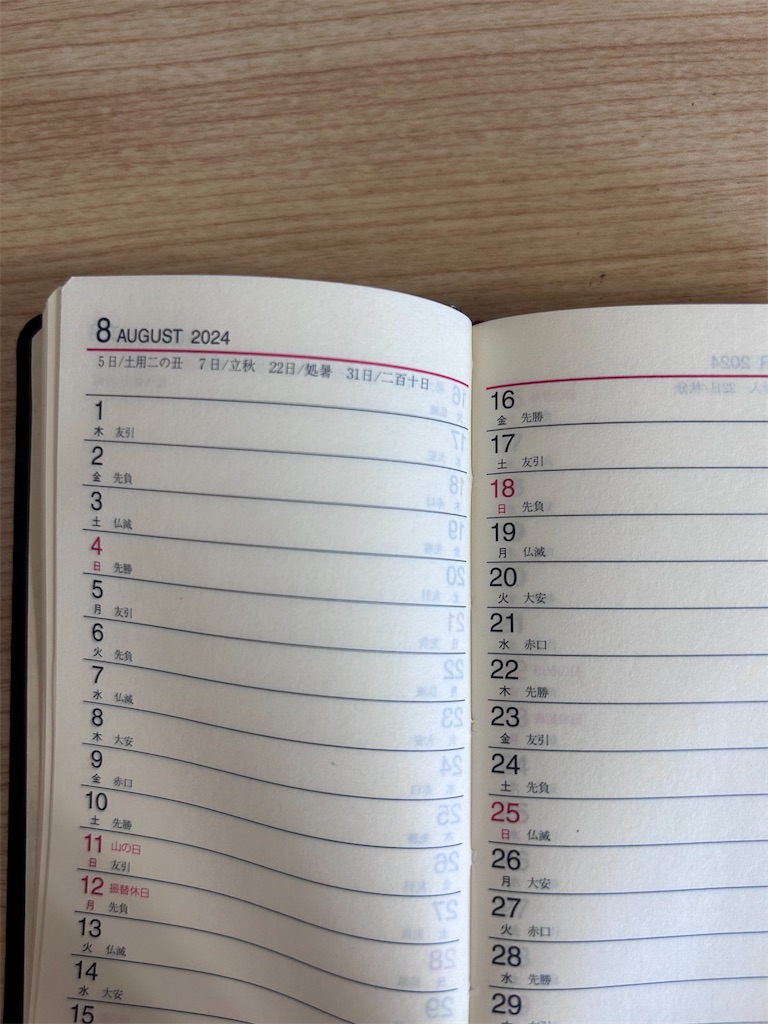 8 AUGUST 2024
5日/土用二の丑 7日/立秋 22日/処暑 31日/二百十日
1
木 友引
2
金 先負
3
土 仏滅
4
日 先勝
5
月 友引
6
火 先負
7
水 仏滅
8
木 大安
9
金 赤口
10
土 先勝
11 山の日
日 友引
12 振替休日
月 先負
13
火 仏滅
14
水 大安
15
16
金 先勝
17
土 友引
18
日 先負
19
月 仏滅
20
火 大安
21
水 赤口
22
木 先勝
23
金 友引
24
土 先負
25
日 仏滅
26
月 大安
27
火 赤口
28
水 先勝
29